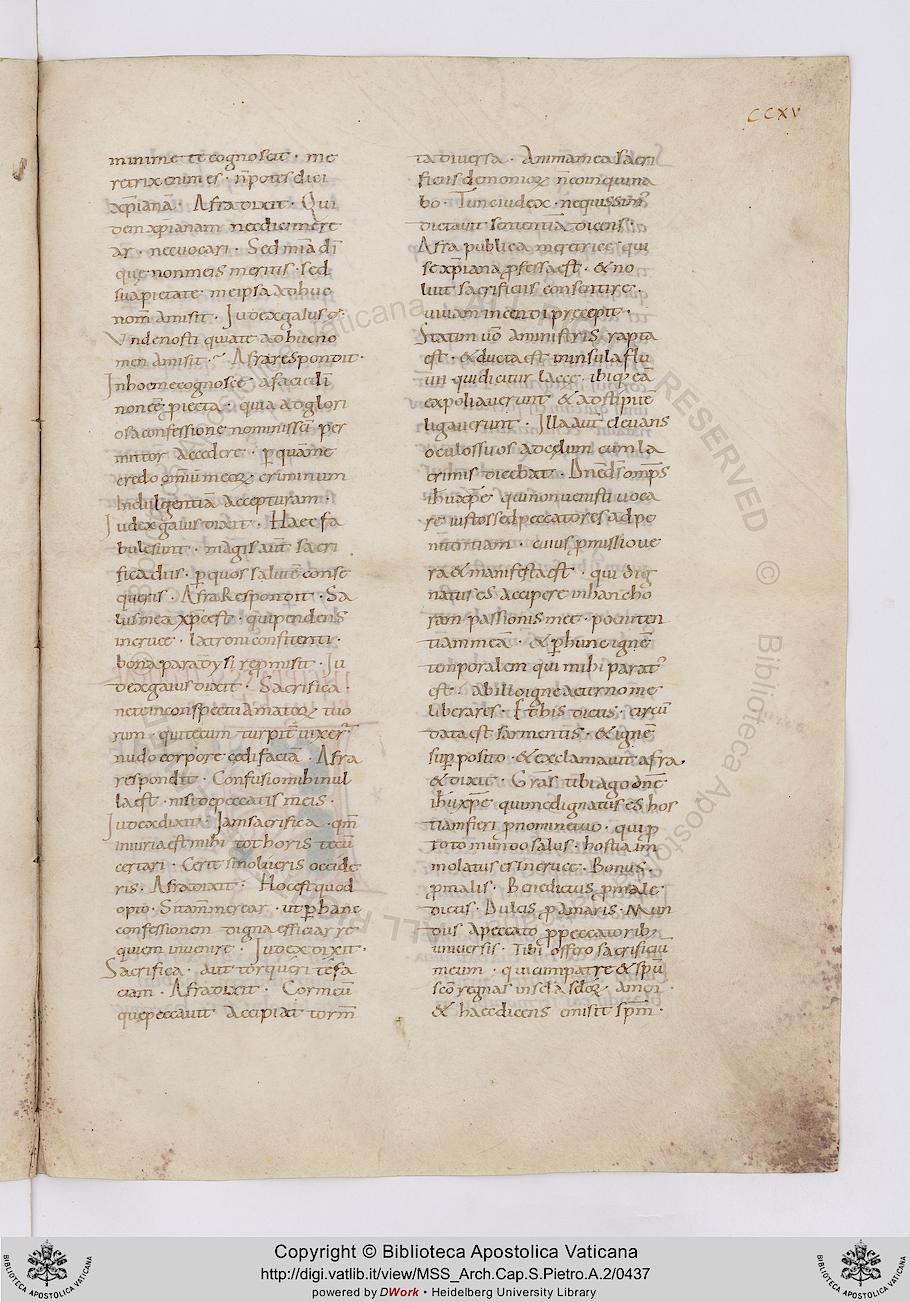 CCXV
minime te cognoscit · me
retrix enim es · n̄ potes dici
xp̄iana · Afra dixit · Qui
dem xpianam nec dici mere
ar · nec vocari · Sed mīa dī
que non meis meritis · sed
sua pietate me ipsa ad huc
nom̄ amisit · Iudex gaius
Unde nosti quia te ad huc no
men amisit · Afra respondit ·
In hoc me cognosce a facie dī
non eē · quia ad glori
osa confessione nominis sui per
mittor accedere · ꝑ quā me
credo om̄iū meoꝝ criminum
Indulgentiā accepturam ·
Iudex gaius dixit · Haec fa
bule sunt · magis aut̄ sacri
fica diis · ꝑ quos salutē conse
queris · Afra Respondit · Sa
lus mea xp̄c est · qui pendens
in cruce · latroni confitenti ·
bona paradysi repmisit · Iu
dex gaius dixit · Sacrifica ·
ne te in conspectu amatoꝝ tuo
rum · qui tecum turpit̄ vixer̄
nudo corpore cedi faciā · Afra
respondit · Confusio mihi nul
la est · nisi de peccatis meis ·
Iudex dixit · Iam sacrifica · qm̄
iniuria est mihi tot horis tecū
certari · Certe si nolueris occide
ris · Afra dixit · Hoc est quod
opto · Si tam̄ merear · ut ꝑ hanc
confessionem digna efficiar re
quiem invenire · Iudex dixit ·
Sacrifica · aut torqueri te fa
ciam · Afra dixit · Cor meū
que peccavit accipiat torm̄
ta diversa · Animam ea sacri
ficiis demonioꝝ n̄ coinquina
bo · Tunc iudex nequissim⁹
dictavit sententiā dicens ·
Afra publica meretrice qui
se xp̄iana ꝓfessa est · & no
luit sacrificiis consentire ·
vivam incendi precepit ·
Statim ūo a ministris rapta
est · & ducta est in insula flu
vii qui dicitur lacce · ibiq; eā
expoliaverunt & ad stipitē
ligaverunt · Illa aut̄ elevans
oculos suos ad cęlum cum la
crimis dicebat · Dn̄e dš omp̄s
ihū xp̄e qui non venisti voca
re iustos sed peccatores ad pe
nitentiam · cuius ꝓmissio ve
ra & manifesta est · qui dig
natus es accipere in hanc ho
ram passionis mee · poeniten
tiam meā · & ꝑ hunc ignē
temporalem qui mihi parat⁹
est · ab illo igne aeterno me
liberares · Et his dictis · circū
data est sarmentis · & ignē
sup̄posito · & exclamavit afra ·
& dixit · Gr̄as tibi ago dn̄e
ihū xp̄e qui me dignatus es hos
tiam fieri ꝓ nomine tuo · qui ꝓ
toto mundo salus · hostia im
molatus es In cruce · Bonus ·
ꝓ malis · Benedictus ꝓ male
dictis · Dulcis ꝓ amaris · Mun
dus a peccato ꝓ peccatorib;
universis · Tibi offero sacrificiū
meum · qui cum patre & sp̄u
sc̄o regnas in sc̄la sc̄loꝝ amen ·
& haec dicens emisit sp̄m ·
Copyright © Biblioteca Apostolica Vaticana
http://digi.vatlib.it/view/MSS_Arch.Cap.S.Pietro.A.2/0437
powered by DWork • Heidelberg University Library